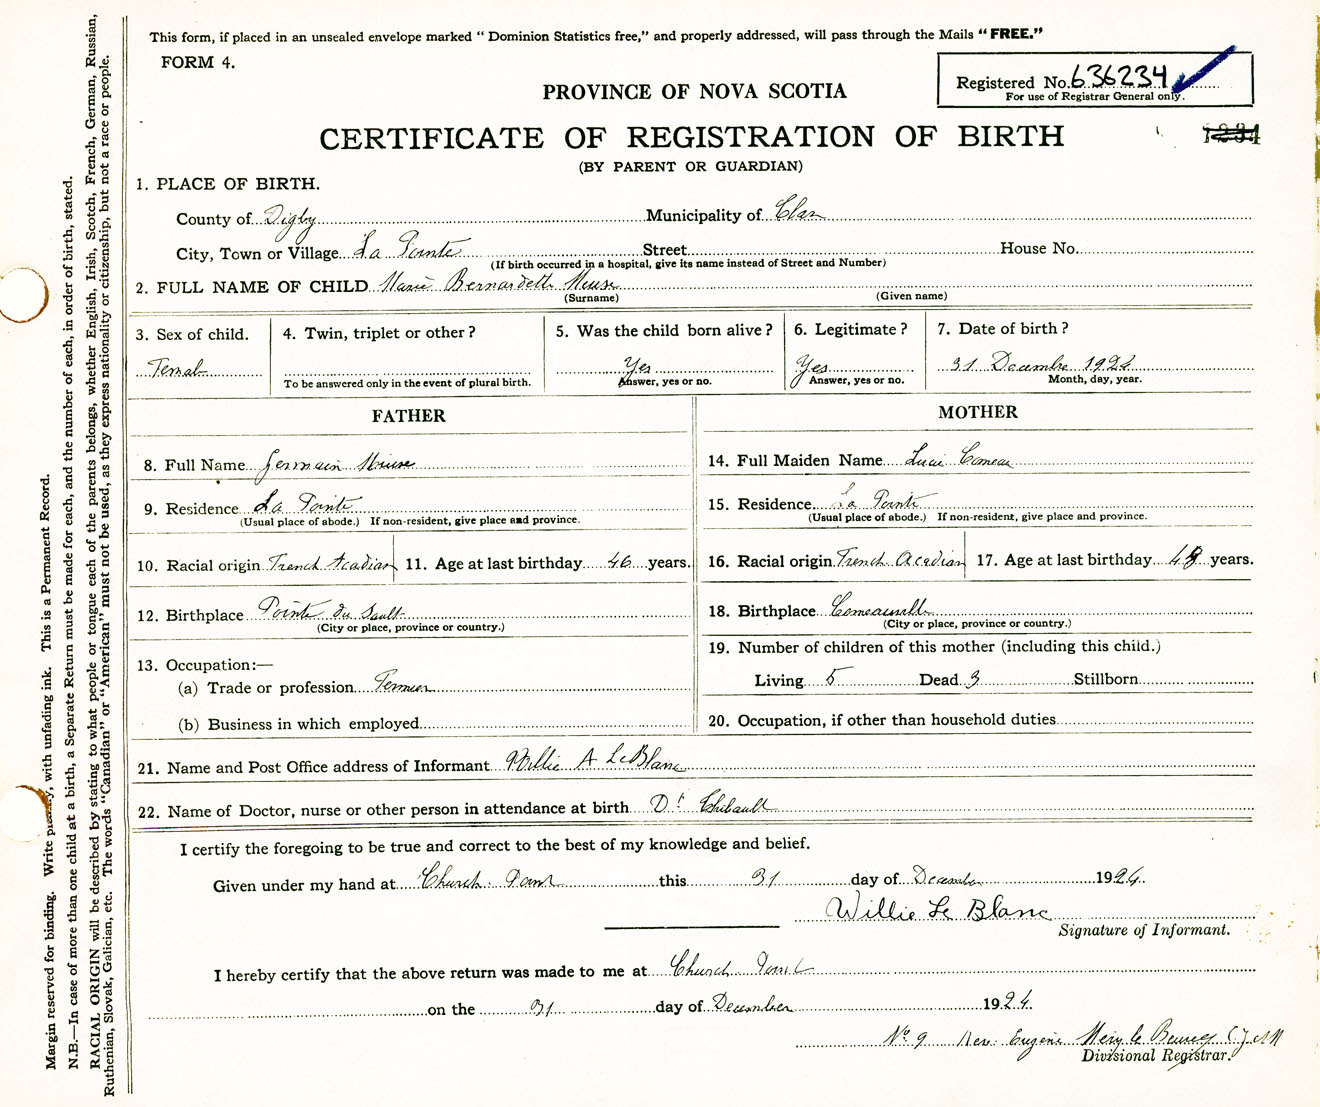 This form, if placed in an unsealed envelope marked “ Dominion Statistics free,” and properly addressed, will pass through the Mails “FREE.”
FORM 4.
Registered No. 636234
For use of Registrar General only.
PROVINCE OF NOVA SCOTIA
CERTIFICATE OF REGISTRATION OF BIRTH
(BY PARENT OR GUARDIAN)
1. PLACE OF BIRTH.
County of Digby Municipality of Clare
City, Town or Village La Pointe Street House No.
(If birth occurred in a hospital, give its name instead of Street and Number)
2. FULL NAME OF CHILD Marie Bernardette Meuse
(Surname) (Given name)
3. Sex of child. 4. Twin, triplet or other? 5. Was the child born alive? 6. Legitimate? 7. Date of birth?
Female Yes Yes 31 Decembre 1924
To be answered only in the event of plural birth. Answer, yes or no. Answer, yes or no. Month, day, year.
FATHER MOTHER
8. Full Name Germain Meuse 14. Full Maiden Name Luci Comeau
9. Residence La Pointe 15. Residence La Pointe
(Usual place of abode.) If non-resident, give place and province. (Usual place of abode.) If non-resident, give place and province.
10. Racial origin French Acadian 11. Age at last birthday 46 years. 16. Racial origin French Acadian 17. Age at last birthday years.
12. Birthplace Pointe du Sault 18. Birthplace Comeauville
(City or place, province or country.) (City or place, province or country.)
19. Number of children of this mother (including this child.)
13. Occupation:—
(a) Trade or profession Fermier Living 5 Dead 3 Stillborn
(b) Business in which employed 20. Occupation, if other than household duties
21. Name and Post Office address of Informant Willie A LeBlanc
22. Name of Doctor, nurse or other person in attendance at birth Dr Thibault
I certify the foregoing to be true and correct to the best of my knowledge and belief.
Given under my hand at Church Point this 31 day of December 1924
Willie Le Blanc
Signature of Informant.
I hereby certify that the above return was made to me at Church Point
on the 31 day of December 1924
No 9 Rev. Eugène C.J.M
Divisional Registrar.
Margin reserved for binding. Write plainly, with unfading ink. This is a Permanent Record.
N.B.—In case of more than one child at a birth, a Separate Return must be made for each, and the number of each, in order of birth, stated.
RACIAL ORIGIN will be described by stating to what people or tongue each of the parents belongs, whether English, Irish, Scotch, French, German, Russian,
Ruthenian, Slovak, Galician, etc. The words “Canadian” or “American” must not be used, as they express nationality or citizenship, but not a race or people.